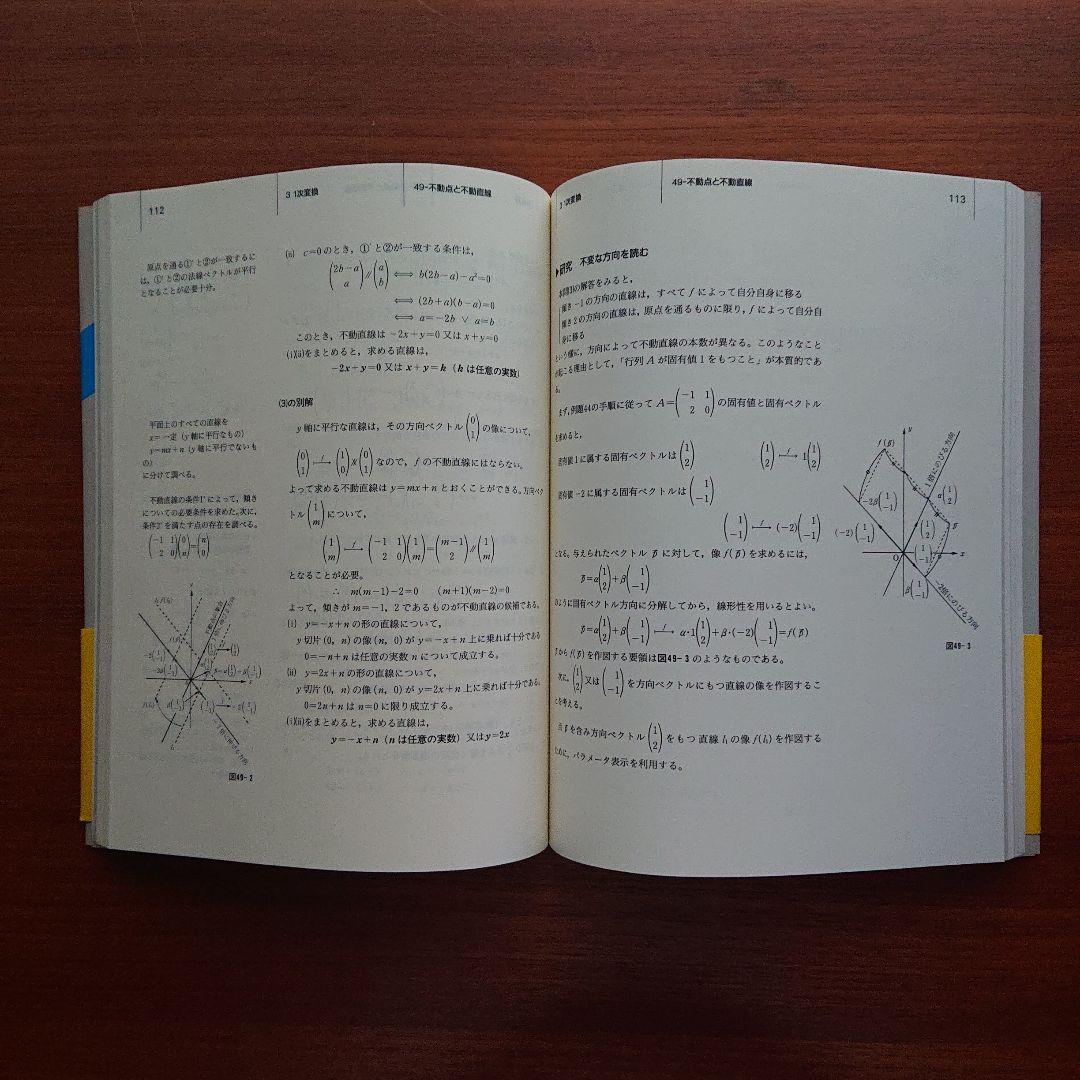 112
3 1次変換
49-不動点と不動直線
原点を通る①'と②が一致するに
は、①'と②の法線ベクトルが平行
となることが必要十分。
(ii) c=0のとき，①'と②が一致する条件は，
(2b-a a)∥(a b) ⟺ b(2b-a)-a²=0
⟺ (2b+a)(b-a)=0
⟺ a=-2b ∨ a=b
このとき，不動直線は -2x+y=0 又は x+y=0
(i)(ii)をまとめると，求める直線は，
-2x+y=0 又は x+y=k (kは任意の実数)
平面上のすべての直線を
x=一定 (y軸に平行なもの)
y=mx+n (y軸に平行でないも
の)
に分けて調べる。
不動直線の条件1°によって，傾き
についての必要条件を求めた。次に，
条件2°を満たす点の存在を調べる。
(-1 1 2 0)(0 n)=(n 0)
(3)の別解
y軸に平行な直線は，その方向ベクトル(0 1)の像について，
(0 1) f→ (1 0)∦(0 1) なので，fの不動直線にはならない。
よって求める不動直線は y=mx+n とおくことができる。方向ベク
トル(1 m)について，
(1 m) f→ (-1 1 2 0)(1 m)=(m-1 2)∥(1 m)
となることが必要。
∴ m(m-1)-2=0 (m+1)(m-2)=0
よって，傾きが m=-1, 2 であるものが不動直線の候補である。
(i) y=-x+n の形の直線について，
y切片(0, n)の像(n, 0)が y=-x+n 上に乗れば十分である
0=-n+n は任意の実数 n について成立する。
(ii) y=2x+n の形の直線について，
y切片(0, n)の像(n, 0)が y=2x+n 上に乗れば十分である。
0=2n+n は n=0 に限り成立する。
(i)(ii)をまとめると，求める直線は，
y=-x+n (nは任意の実数) 又は y=2x
図49-2
3 1次変換
49-不動点と不動直線
113
研究 不変な方向を読む
の解答をみると，
傾き -1 の方向の直線は，すべて f によって自分自身に移る
傾き 2 の方向の直線は，原点を通るものに限り，f によって自分自
身に移る
という様に，方向によって不動直線の本数が異なる。このようなこと
が起こる理由として，「行列 A が固有値 1 をもつこと」が本質的であ
る。
まず，例題44の手順に従って A=(-1 1 2 0)の固有値と固有ベクトル
を求めると，
固有値1に属する固有ベクトルは(1 2) (1 2) f→ 1(1 2)
固有値 -2 に属する固有ベクトルは(1 -1)
(1 -1) f→ (-2)(1 -1)
となる。与えられたベクトル p⃗ に対して，像 f(p⃗) を求めるには，
p⃗=α(1 2)+β(1 -1)
のように固有ベクトル方向に分解してから，線形性を用いるとよい。
p⃗=α(1 2)+β(1 -1) f→ α·1(1 2)+β·(-2)(1 -1)=f(p⃗)
p⃗から f(p⃗) を作図する要領は図49-3のようなものである。
次に，(1 2)又は(1 -1)を方向ベクトルにもつ直線の像を作図するこ
とを考える。
p⃗ を含み方向ベクトル(1 2)をもつ 直線 l₁ の像 f(l₁) を作図する
ために，パラメータ表示を利用する。
y
f(p⃗)
1倍にのびる方向
α(1 2)
-2β(1 -1)
p⃗
(1 2)
(-2)(1 -1)
(1 -1)
O
x
β(1 -1)
-2倍にのびる方向
図49-3